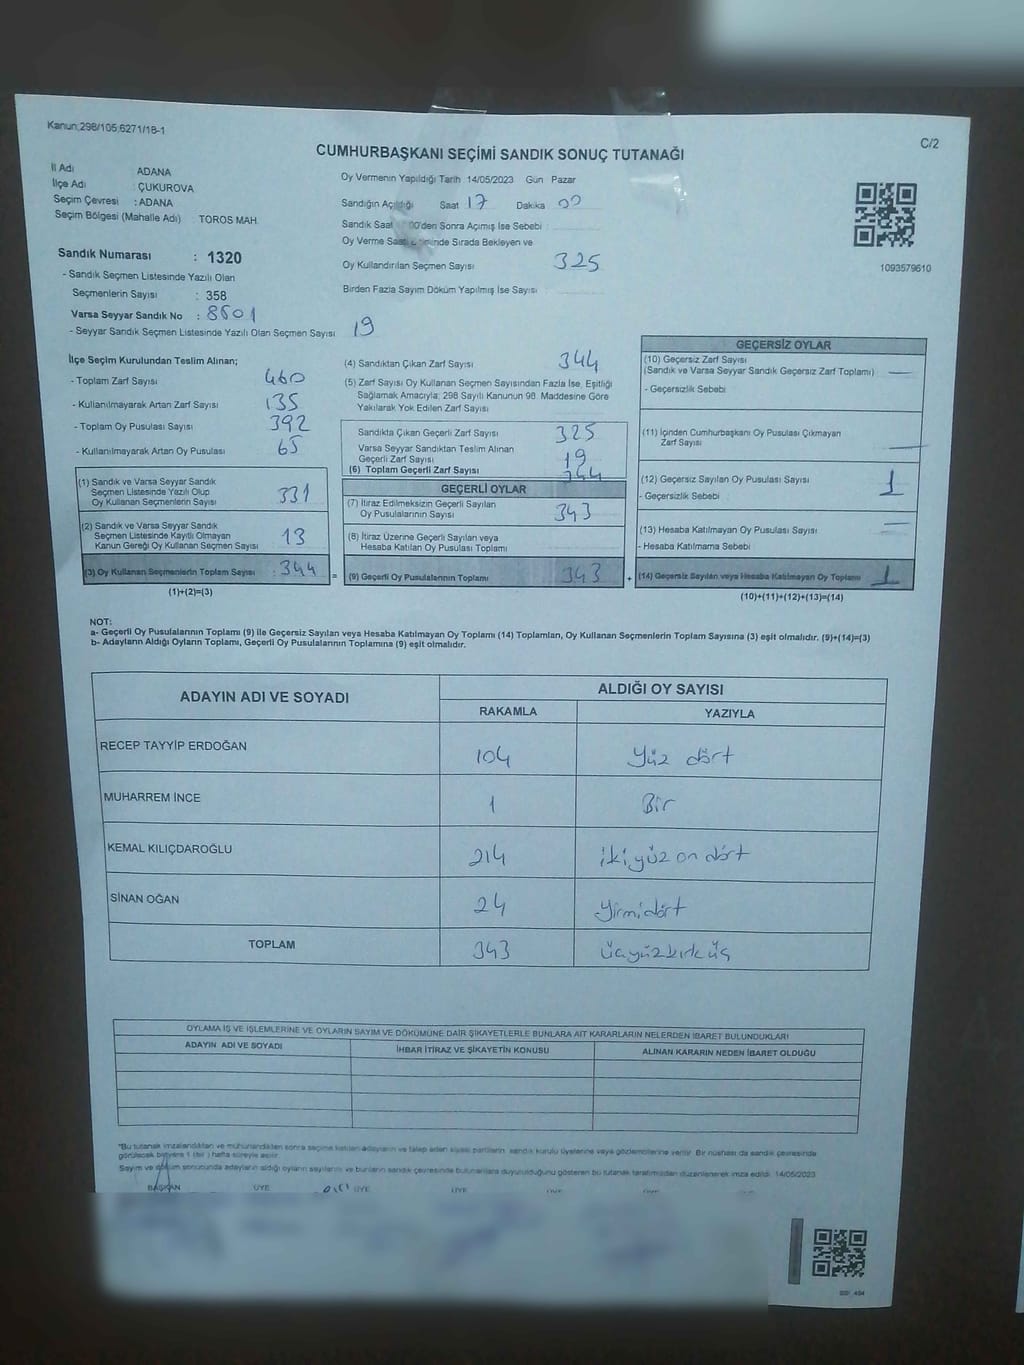 Kanun:298/105,6271/18-1
C/2
CUMHURBAŞKANI SEÇİMİ SANDIK SONUÇ TUTANAĞI
İl Adı : ADANA
İlçe Adı : ÇUKUROVA
Seçim Çevresi : ADANA
Seçim Bölgesi (Mahalle Adı) TOROS MAH.
Sandık Numarası : 1320
- Sandık Seçmen Listesinde Yazılı Olan
Seçmenlerin Sayısı : 358
Varsa Seyyar Sandık No : 8501
- Seyyar Sandık Seçmen Listesinde Yazılı Olan Seçmen Sayısı 19
Oy Vermenin Yapıldığı Tarih 14/05/2023 Gün Pazar
Sandığın Açıldığı Saat 17 Dakika 00
Sandık Saat 00'den Sonra Açımış İse Sebebi :
Oy Verme Saati Sırada Bekleyen ve
Oy Kullandırılan Seçmen Sayısı 325
Birden Fazla Sayım Döküm Yapılmış İse Sayısı :
1093579610
İlçe Seçim Kurulundan Teslim Alınan;
- Toplam Zarf Sayısı 460
- Kullanılmayarak Artan Zarf Sayısı 135
- Toplam Oy Pusulası Sayısı 392
- Kullanılmayarak Artan Oy Pusulası 65
(1) Sandık ve Varsa Seyyar Sandık
Seçmen Listesinde Yazılı Olup
Oy Kullanan Seçmenlerin Sayısı 331
(2) Sandık ve Varsa Seyyar Sandık
Seçmen Listesinde Kayıtlı Olmayan
Kanun Gereği Oy Kullanan Seçmen Sayısı 13
(3) Oy Kullanan Seçmenlerin Toplam Sayısı : 344
(1)+(2)=(3)
(4) Sandıktan Çıkan Zarf Sayısı 344
(5) Zarf Sayısı Oy Kullanan Seçmen Sayısından Fazla İse, Eşitliği
Sağlamak Amacıyla; 298 Sayılı Kanunun 98. Maddesine Göre
Yakılarak Yok Edilen Zarf Sayısı
Sandıkta Çıkan Geçerli Zarf Sayısı 325
Varsa Seyyar Sandıktan Teslim Alınan
Geçerli Zarf Sayısı 19
(6) Toplam Geçerli Zarf Sayısı 344
GEÇERLİ OYLAR
(7) İtiraz Edilmeksizin Geçerli Sayılan
Oy Pusulalarının Sayısı 343
(8) İtiraz Üzerine Geçerli Sayılan veya
Hesaba Katılan Oy Pusulası Toplamı
= (9) Geçerli Oy Pusulalarının Toplamı 343 +
GEÇERSİZ OYLAR
(10) Geçersiz Zarf Sayısı
(Sandık ve Varsa Seyyar Sandık Geçersiz Zarf Toplamı) —
- Geçersizlik Sebebi
(11) İçinden Cumhurbaşkanı Oy Pusulası Çıkmayan
Zarf Sayısı —
(12) Geçersiz Sayılan Oy Pusulası Sayısı 1
- Geçersizlik Sebebi
(13) Hesaba Katılmayan Oy Pusulası Sayısı —
- Hesaba Katılmama Sebebi
(14) Geçersiz Sayılan veya Hesaba Katılmayan Oy Toplamı 1
(10)+(11)+(12)+(13)=(14)
NOT:
a- Geçerli Oy Pusulalarının Toplamı (9) ile Geçersiz Sayılan veya Hesaba Katılmayan Oy Toplamı (14) Toplamları, Oy Kullanan Seçmenlerin Toplam Sayısına (3) eşit olmalıdır. (9)+(14)=(3)
b- Adayların Aldığı Oyların Toplamı, Geçerli Oy Pusulalarının Toplamına (9) eşit olmalıdır.
ADAYIN ADI VE SOYADI ALDIĞI OY SAYISI
RAKAMLA YAZIYLA
RECEP TAYYİP ERDOĞAN 104 Yüz dört
MUHARREM İNCE 1 Bir
KEMAL KILIÇDAROĞLU 214 ikiyüz on dört
SİNAN OĞAN 24 Yirmidört
TOPLAM 343 üçyüzkırküç
OYLAMA İŞ VE İŞLEMLERİNE VE OYLARIN SAYIM VE DÖKÜMÜNE DAİR ŞİKAYETLERLE BUNLARA AİT KARARLARIN NELERDEN İBARET BULUNDUKLARI
ADAYIN ADI VE SOYADI İHBAR İTİRAZ VE ŞİKAYETİN KONUSU ALINAN KARARIN NEDEN İBARET OLDUĞU
*Bu tutanak imzalandıktan ve mühürlendikten sonra seçime katılan adayların ve talep eden siyasi partilerin sandık kurulu üyelerine veya gözlemcilerine verilir. Bir nüshası da sandık çevresinde
görülecek bir yere 1 (bir) hafta süreyle asılır.
Sayım ve döküm sonucunda adayların aldığı oyların sayılarını ve bunların sandık çevresinde bulunanlara duyurulduğunu gösteren bu tutanak tarafımızdan düzenlenerek imza edildi. 14/05/2023
BAŞKAN ÜYE ÜYE ÜYE